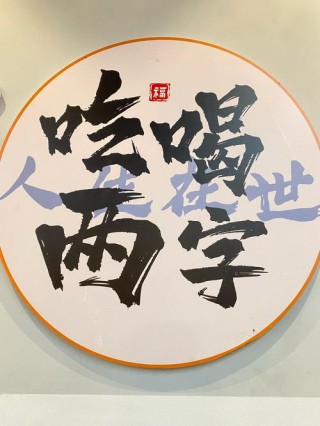 福
吃喝
人生在世
两字